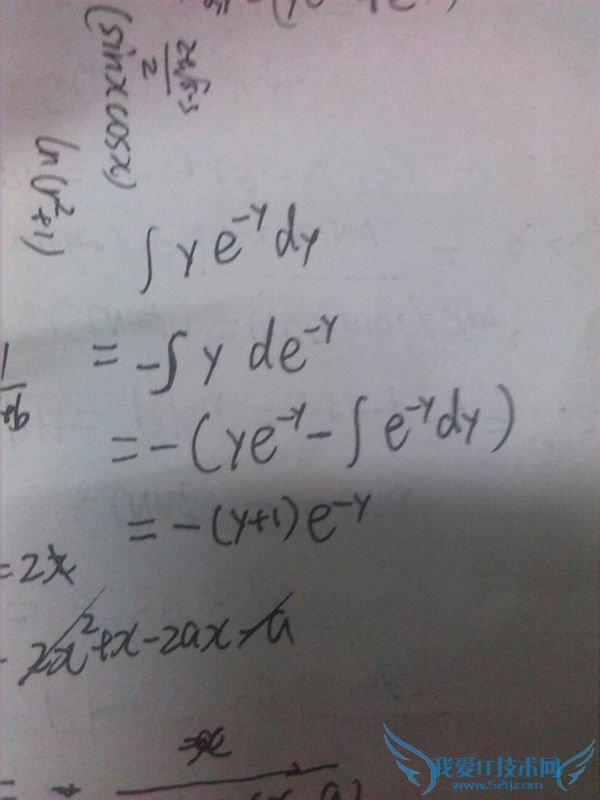 (sinxcosx)
ln(r²+1)
∫ye^{-y}dy
= -∫y de^{-y}
= -(ye^{-y} - ∫e^{-y}dy)
= -(y+1)e^{-y}
= 2x
2x²+x-2ax-a
我爱IT技术网
www.52ij.com